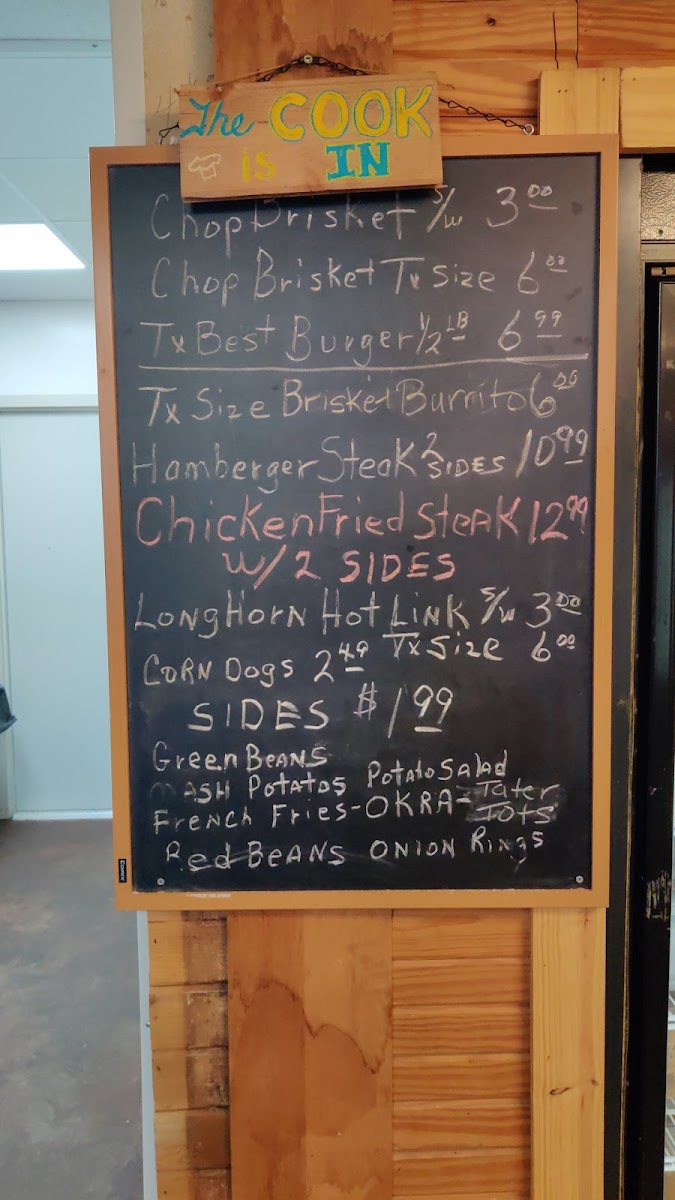 The COOK
is IN
Chop Brisket S/w 3.00
Chop Brisket Tx Size 6.00
Tx Best Burger 1/2 LB 6.99
Tx Size Brisket Burrito 6.00
Hamberger Steak 2 SIDES 10.99
Chicken Fried Steak 12.99
W/2 SIDES
LongHorn Hot Link S/w 3.00
Tx Size 6.00
Corn Dogs 2.49
SIDES $1.99
Green Beans
Mash Potatos Potato Salad
French Fries-OKRA-Tater Tots
Red Beans Onion Rings